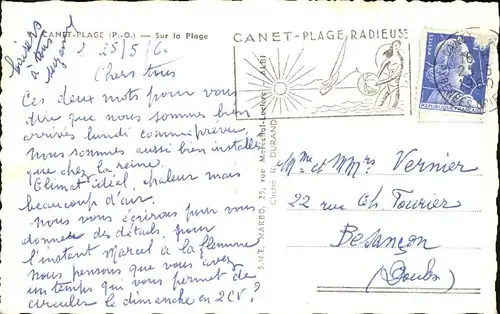 CANET-PLAGE (P.-O.) — Sur la Plage
baisers
à tous
25/5/60
Chers tous
Ces deux mots pour vous
dire que nous sommes bien
arrivés lundi comme prévu.
Nous sommes aussi bien installés
que chez la reine.
Climat idéal, chaleur mais
beaucoup d'air.
Nous vous écrirons pour vous
donner des détails, pour
l'instant Marcel a la flemme
Nous pensons que vous avez
un temps qui vous permet de
circuler le dimanche en 2CV ?
S.N.E. NARBO, 25, rue Maréchal-Leclerc - ALBI
Cliché R. DURAND
CANET-PLAGE RADIEUSE
POSTES
RÉPUBLIQUE FRANÇAISE
Mme et Mrs Vernier
22 rue Ch Tourier
Besançon
(Doubs)